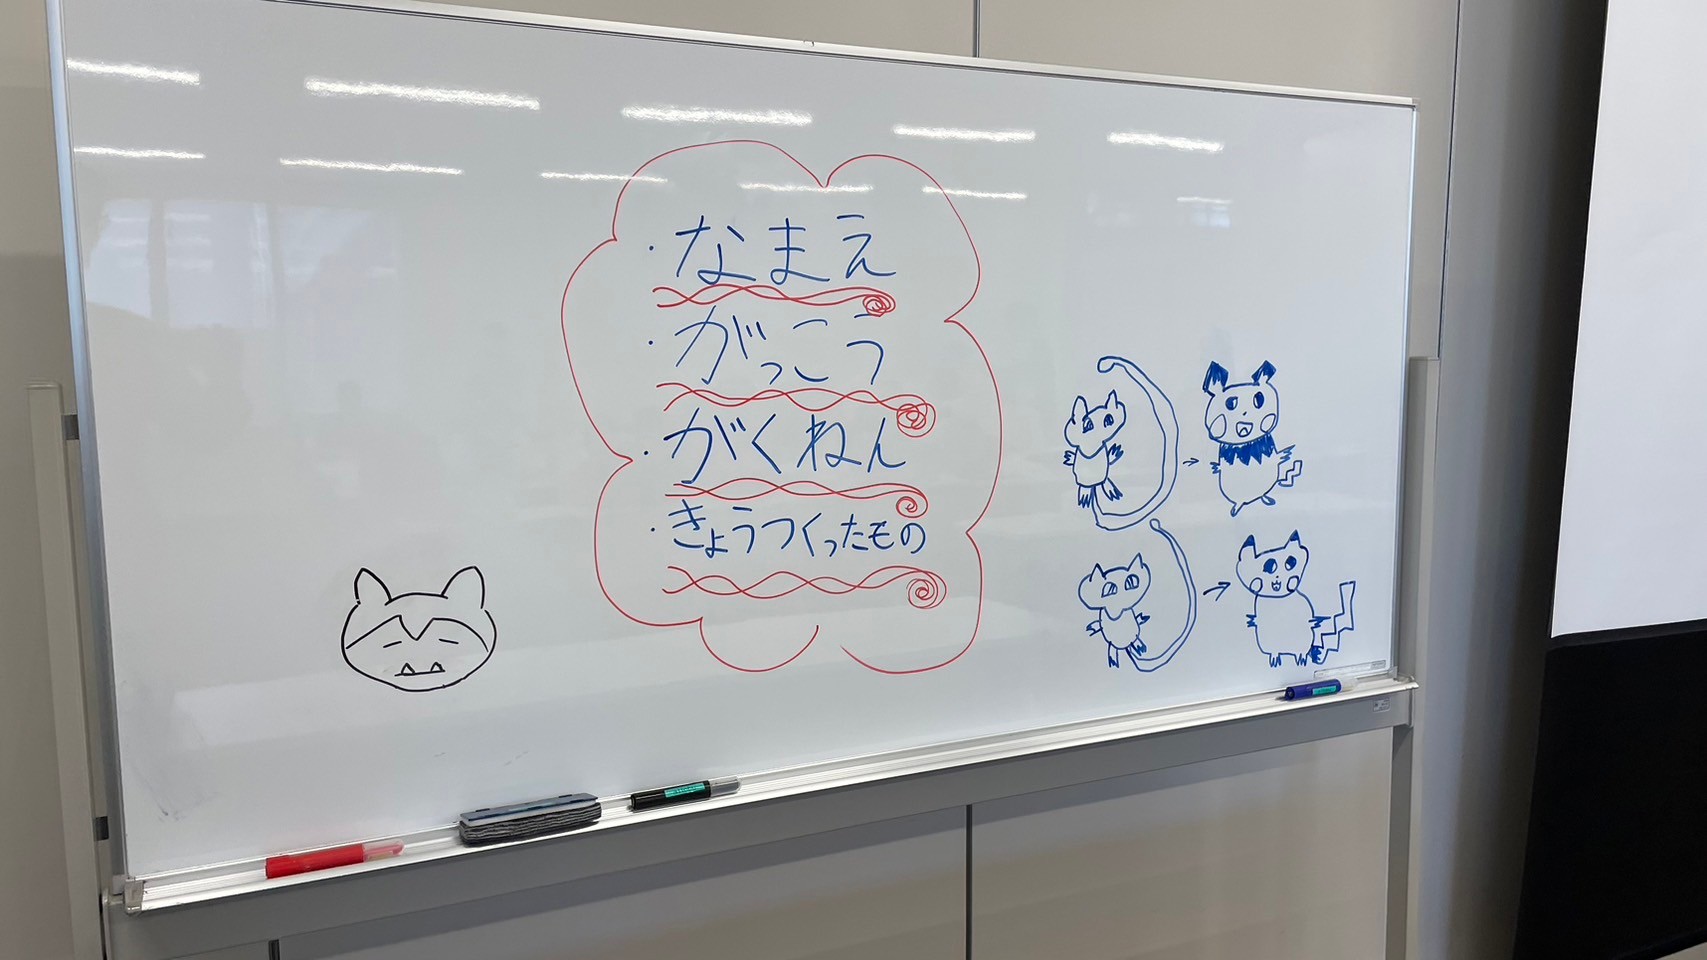 ・なまえ
・がっこう
・がくねん
・きょうつくったもの